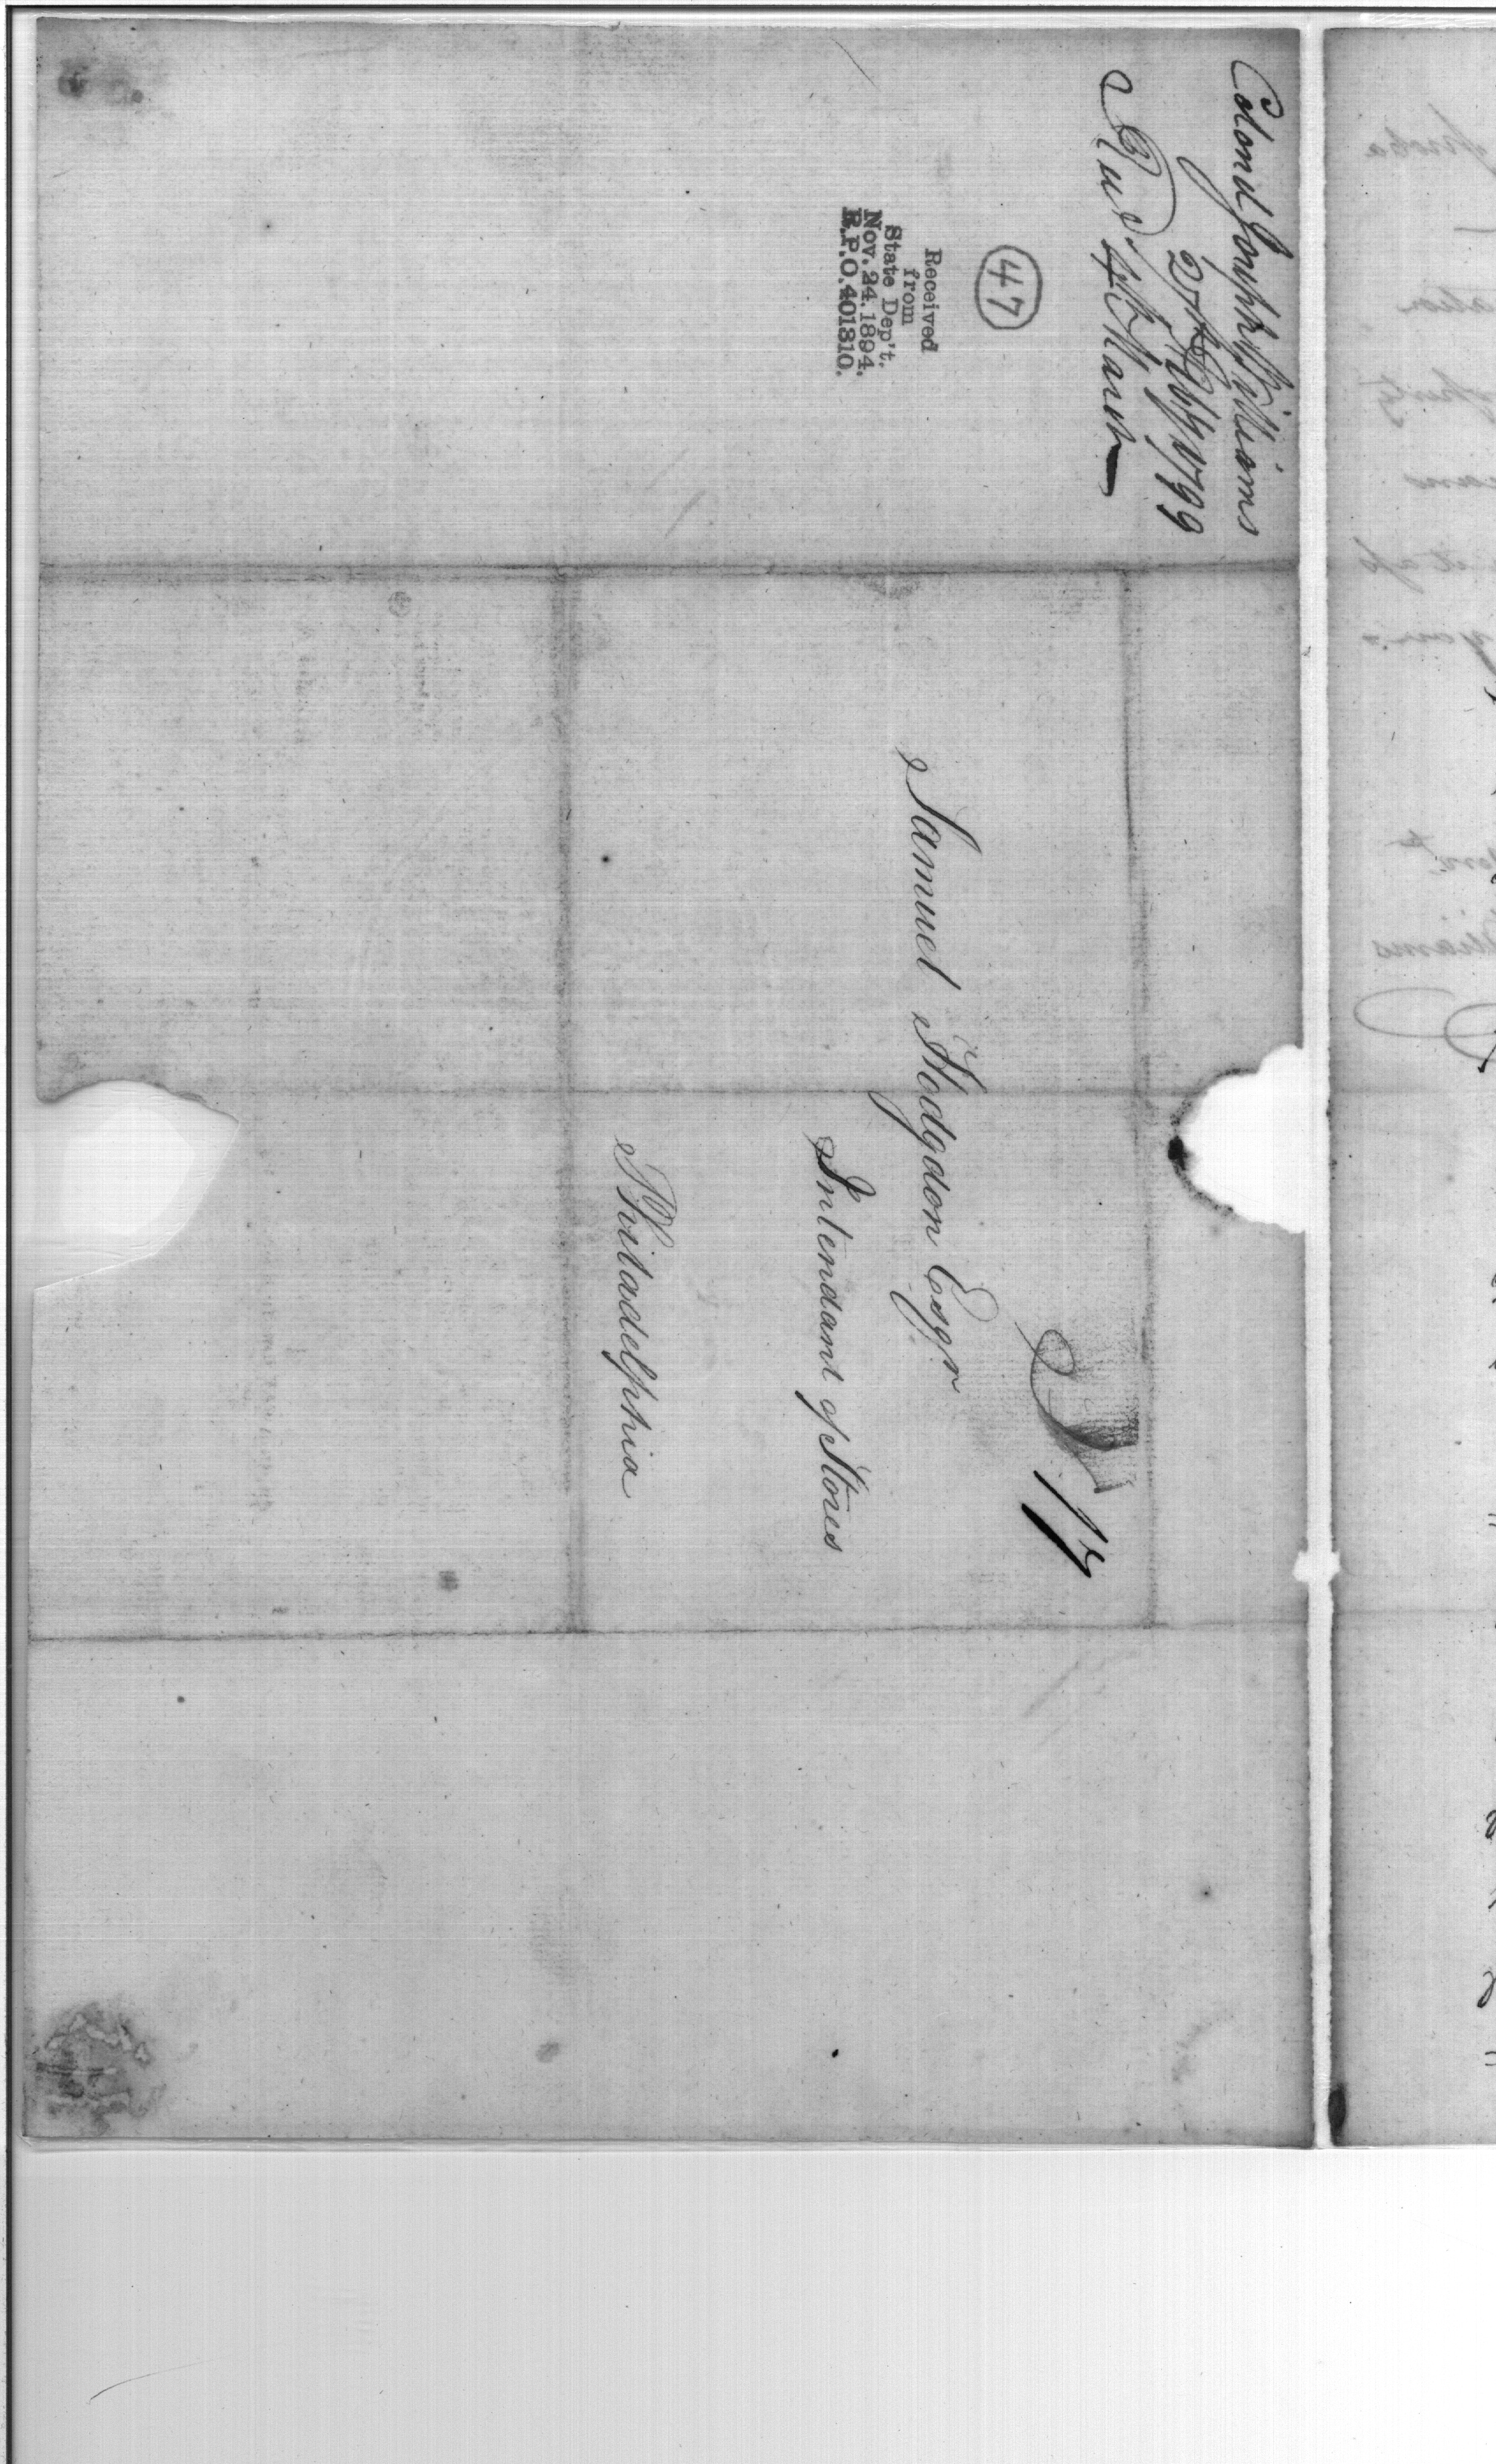 Colonel Joseph Williams
27th Feby 1799
Recd 4th March
47
Received
from
State Dep't.
Nov. 24. 1894.
R.P.O. 401310.
17
Samuel Hodgdon Esqr
Intendant of Stores
Philadelphia